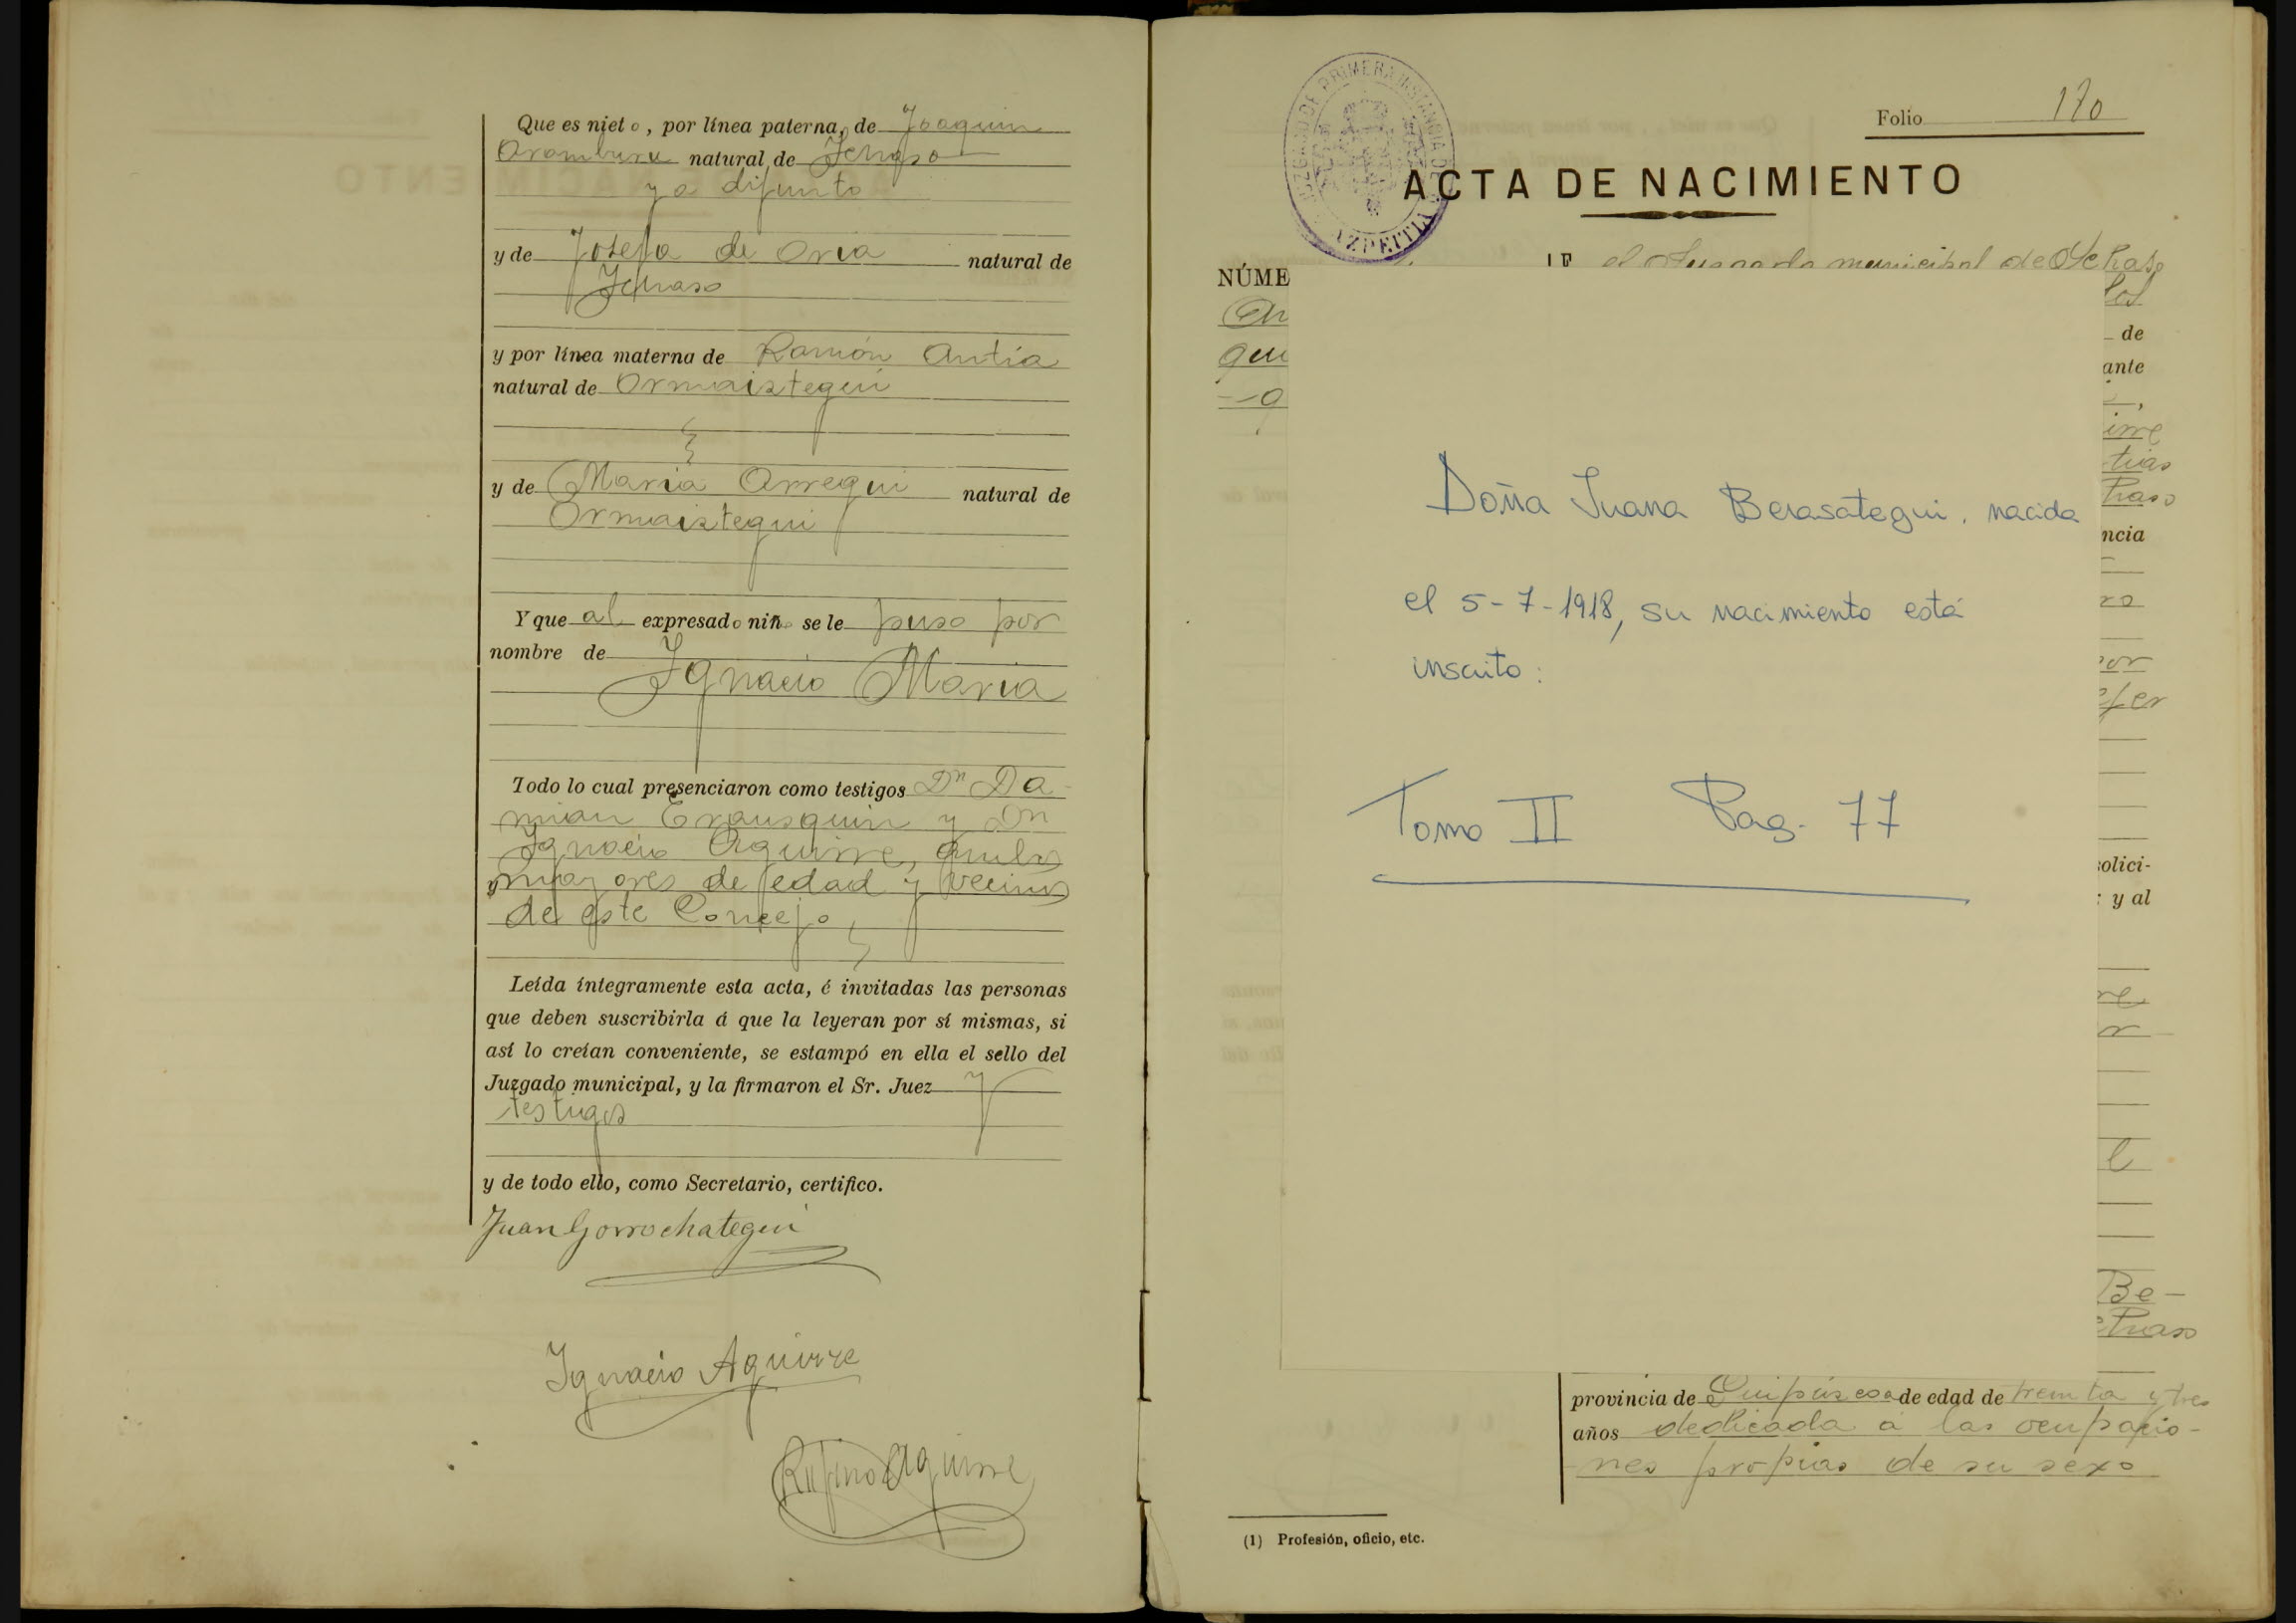 Que es nieto, por línea paterna, de Joaquin
Aramburu natural de Ichaso
ya difunto
y de Josefa de Oria natural de
Ichaso
y por línea materna de Ramón Antia
natural de Ormaiztegui
y de Maria Arregui natural de
Ormaiztegui
Y que al expresado niño se le puso por
nombre de
Ignacio Maria
Todo lo cual presenciaron como testigos Dn Da-
mian Erausquin y Dn
Ignacio Aguirre,
mayores de edad y vecinos
de este Concejo,
Leída íntegramente esta acta, é invitadas las personas
que deben suscribirla á que la leyeran por sí mismas, si
así lo creían conveniente, se estampó en ella el sello del
Juzgado municipal, y la firmaron el Sr. Juez y
testigos
y de todo ello, como Secretario, certifico.
Juan Gorrochategui
Ignacio Aguirre
Rufino Aguirre
JUZGADO DE PRIMERA INSTANCIA DE AZPEITIA
Folio 170
ACTA DE NACIMIENTO
NÚME
el Juzgado municipal de
de
ante
irre
ncia
Doña Juana Berasategui, nacida
el 5-7-1918, su nacimiento está
inscrito:
Tomo II Pag. 77
por
solici-
y al
Be-
provincia de Guipúzcoa de edad de treinta y tres
años dedicada a las ocupacio-
nes propias de su sexo
(1) Profesión, oficio, etc.